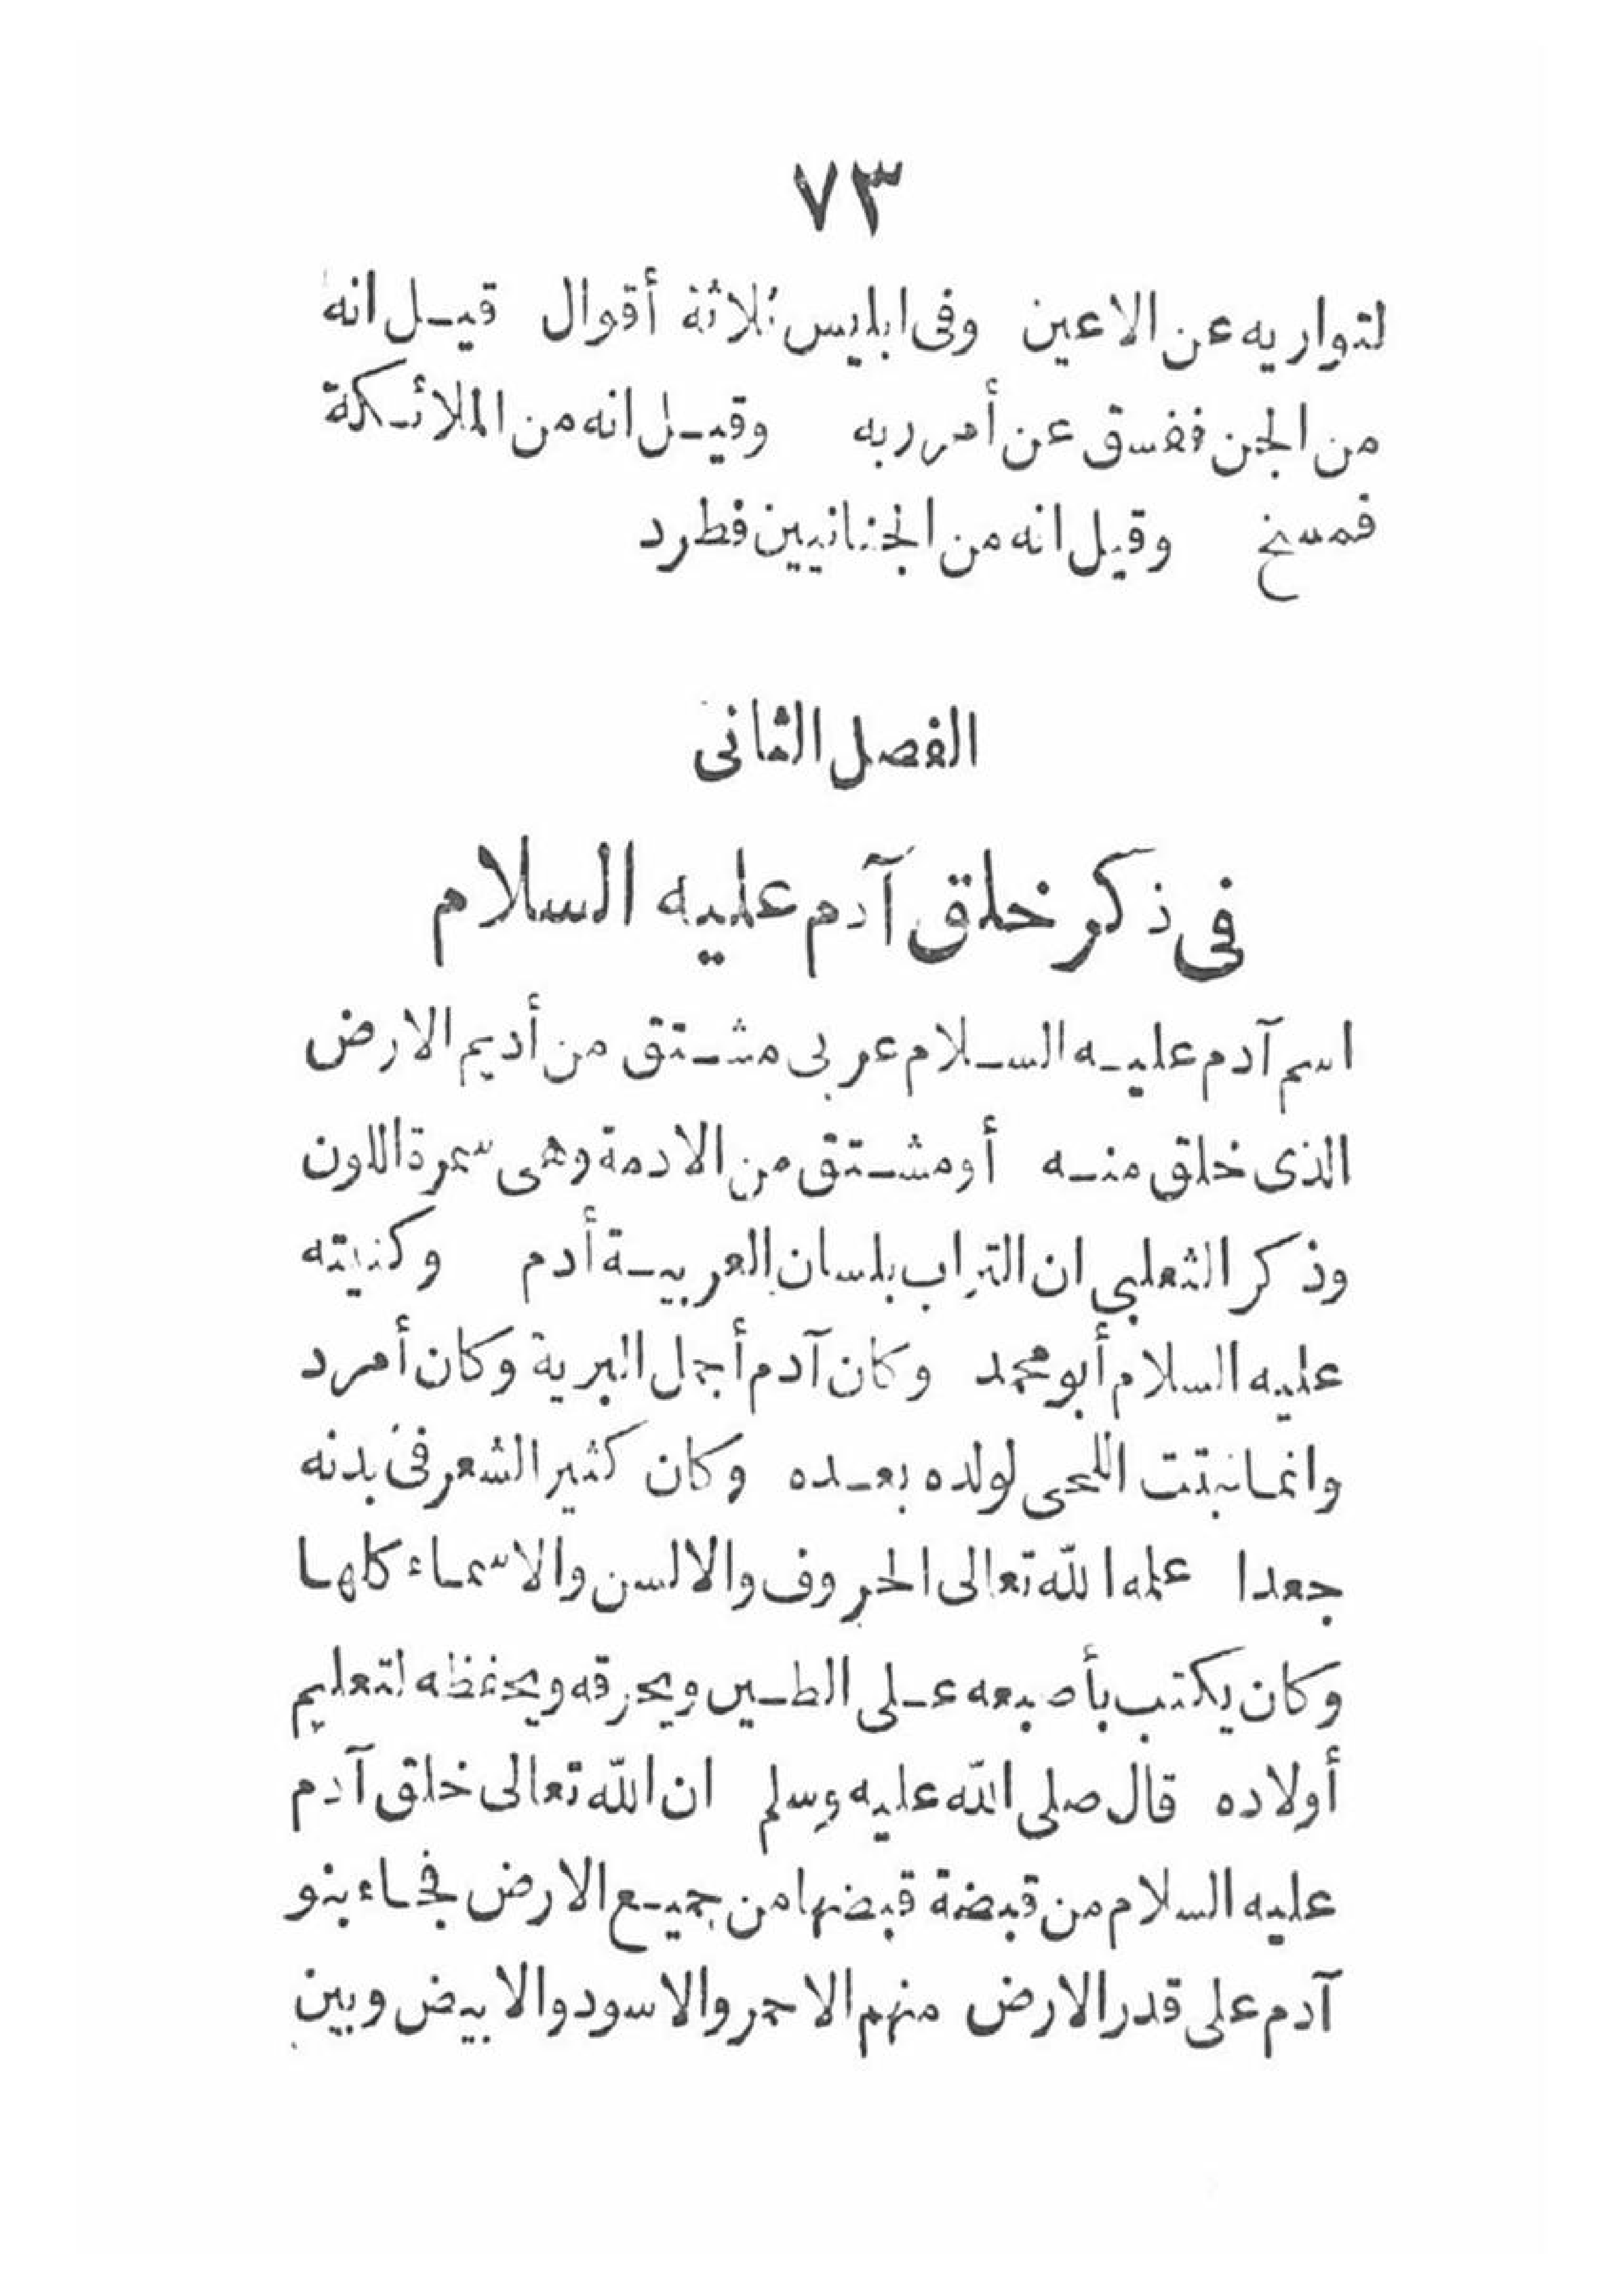 ٧٣
لتواريه عن الاعين وفى ابليس ثلاثة أقوال قيل انه
من الجن ففسق عن أمر ربه وقيل انه من الملائكة
فمسخ وقيل انه من الجنانيين فطرد
الفصل الثانى
فى ذكر خلق آدم عليه السلام
اسم آدم عليه السلام عربى مشتق من أديم الارض
الذى خلق منه أو مشتق من الادمة وهى سمرة اللون
وذكر الثعلبى ان التراب بلسان العربية أدم وكنيته
عليه السلام أبو محمد وكان آدم أجمل البرية وكان أمرد
وانما نبتت اللحى لولده بعده وكان كثير الشعر فى بدنه
جعدا علمه الله تعالى الحروف والالسن والاسماء كلها
وكان يكتب بأصبعه على الطين ويحرقه ويحفظه لتعليم
أولاده قال صلى الله عليه وسلم ان الله تعالى خلق آدم
عليه السلام من قبضة قبضها من جميع الارض فجاء بنو
آدم على قدر الارض منهم الاحمر والاسود والابيض وبين